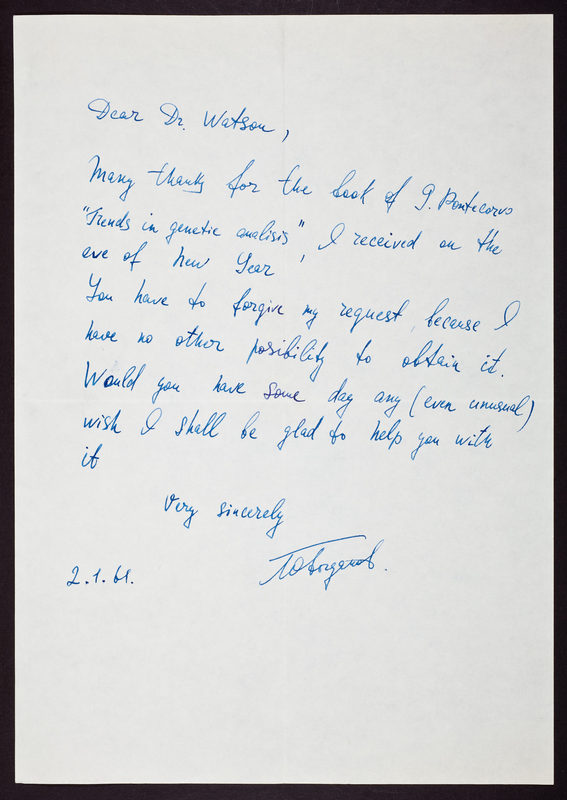 Dear Dr. Watson,
Many thanks for the book of G. Pontecorvo
"Trends in genetic analisis", I received on the
eve of New Year
You have to forgive my request, because I
have no other posibility to obtain it.
Would you have some day any (even unusual)
wish I shall be glad to help you with
it
Very sincerely
2.1.61.